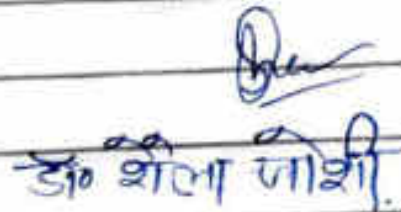 डॉ० शैला जोशी